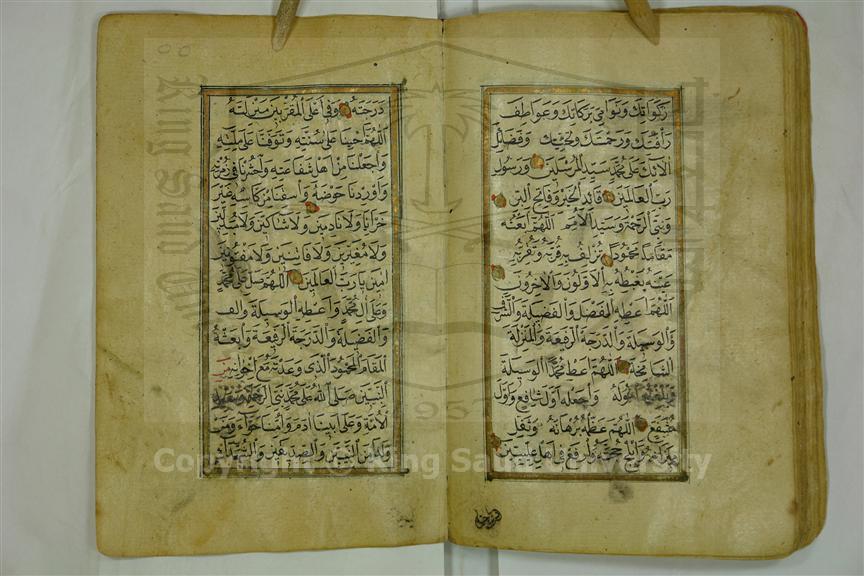 زكواتك ونوامي بركاتك وعواطف
رأفتك ورحمتك وتحيتك وفضائل
آلائك على محمد سيد المرسلين ورسول
رب العالمين قائد الخير وفاتح البر
ونبي الرحمة وسيد الأمة اللهم ابعثه
مقاما محمودا تزلف به قربه وتقر به
عينه يغبطه به الأولون والآخرون
اللهم أعطه الفضل والفضيلة والشرف
والوسيلة والدرجة الرفيعة والمنزلة
الشامخة اللهم أعط محمدا الوسيلة
وبلغه مأموله واجعله أول شافع وأول
مشفع اللهم عظم برهانه وثقل
ميزانه وأبلج حجته وارفع في أهل عليين
درجته وفي أعلى المقربين منزلته
اللهم أحينا على سنته وتوفنا على ملته
واجعلنا من أهل شفاعته واحشرنا في زمرته
وأوردنا حوضه واسقنا من كأسه غير
خزايا ولا نادمين ولا شاكين ولا مبدلين
ولا مغيرين ولا فاتنين ولا مفتونين
آمين يا رب العالمين اللهم صل على محمد
وعلى آل محمد وأعطه الوسيلة والف
والفضيلة والدرجة الرفيعة وابعثه
المقام المحمود الذي وعدته مع إخوانه من
النبيين صلى الله على محمد نبي الرحمة وسيد
الأمة وعلى أبينا آدم وأمنا حواء ومن
ولدا من النبيين والصديقين والشهداء
King Saud University
1957
Copyright © King Saud University